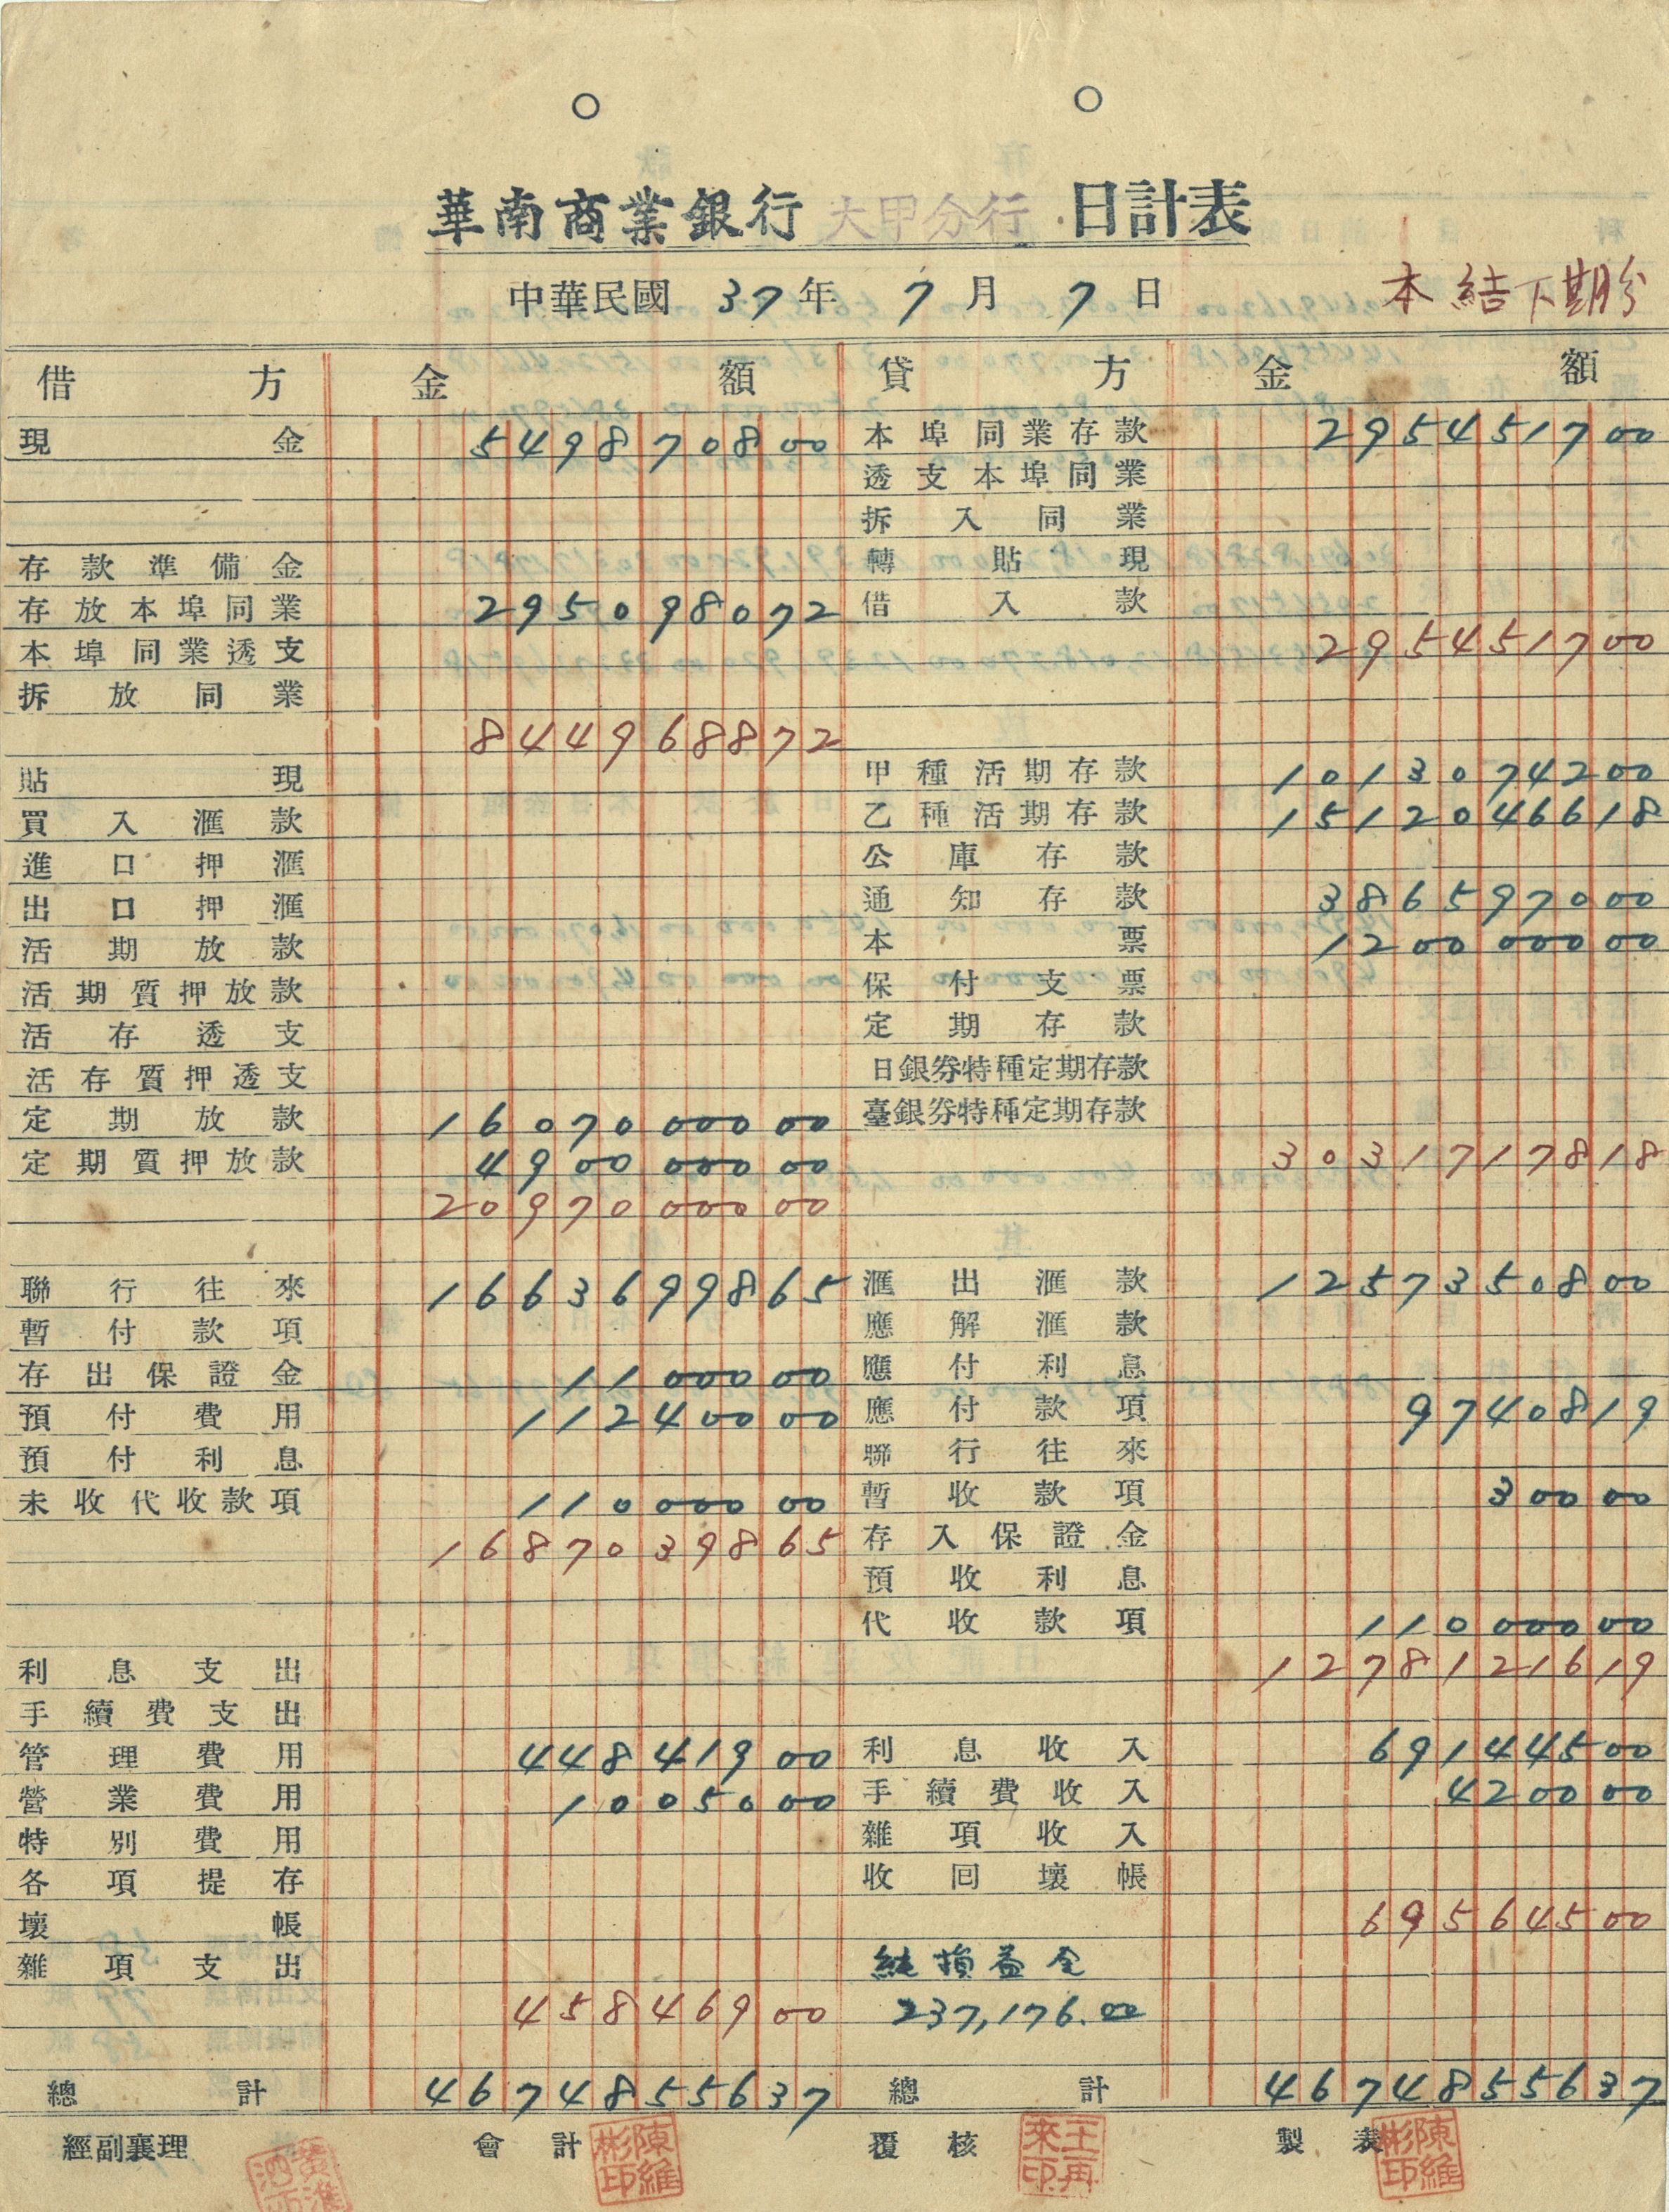 華南商業銀行 大甲分行 日計表
中華民國 37 年 7 月 7 日
本結下期份
借方 金額 貸方 金額
現金 5498708 00 本埠同業存款 2954517 00
透支本埠同業
拆入同業
存款準備金 轉貼現
存放本埠同業 2950980 72 借入款
本埠同業透支 2954517 00
拆放同業
8449688 72
貼現 甲種活期存款 10130742 00
買入滙款 乙種活期存款 15120466 18
進口押滙 公庫存款
出口押滙 通知存款 3865970 00
活期放款 本票 1200000 00
活期質押放款 保付支票
活存透支 定期存款
活存質押透支 日銀券特種定期存款
定期放款 16070000 00 臺銀券特種定期存款
定期質押放款 4900000 00 30317178 18
20970000 00
聯行往來 16636998 65 滙出滙款 12573508 00
暫付款項 應解滙款
存出保證金 11000 00 應付利息
預付費用 112400 00 應付款項 97408 19
預付利息 聯行往來
未收代收款項 110000 00 暫收款項 300 00
16870398 65 存入保證金
預收利息
代收款項 110000 00
利息支出 12781216 19
手續費支出
管理費用 448419 00 利息收入 691445 00
營業費用 10050 00 手續費收入 4200 00
特別費用 雜項收入
各項提存 收回壞帳
壞帳 695645 00
雜項支出 純損益金
458469 00 237,176.00
總計 46748556 37 總計 46748556 37
經副襄理 會計 陳維彬印 覆核 王再來印 製表 陳維彬印